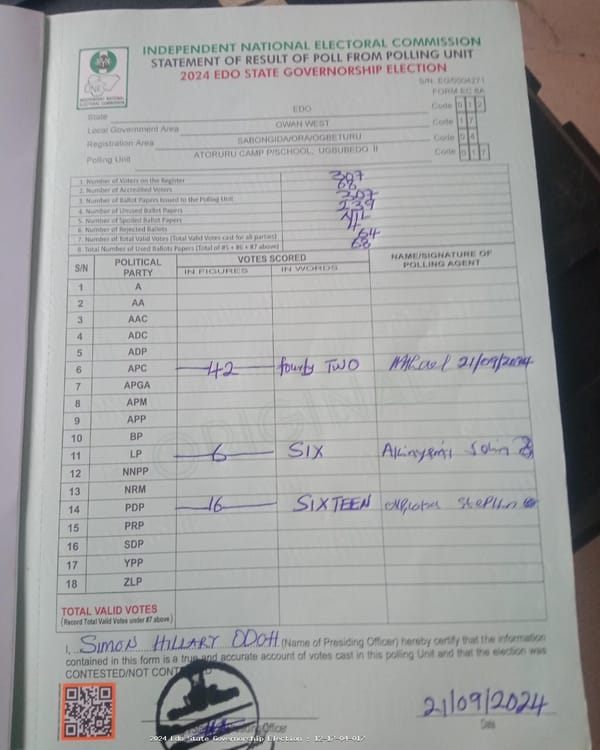 INDEPENDENT NATIONAL ELECTORAL COMMISSION
STATEMENT OF RESULT OF POLL FROM POLLING UNIT
2024 EDO STATE GOVERNORSHIP ELECTION
INDEPENDENT NATIONAL ELECTORAL COMMISSION
S/N: EG/0004271
FORM EC 8A
State EDO Code 0 1 2
Local Government Area OWAN WEST Code 1 7
Registration Area SABONGIDA/ORA/OGBETURU Code 0 4
Polling Unit ATORURU CAMP P/SCHOOL, UGBUBEDO II Code 0 1 7
1. Number of Voters on the Register 307
2. Number of Accredited Voters 68
3. Number of Ballot Papers Issued to the Polling Unit 307
4. Number of Unused Ballot Papers 239
5. Number of Spoiled Ballot Papers NIL
6. Number of Rejected Ballots 4
7. Number of Total Valid Votes (Total Valid Votes cast for all parties) 64
8. Total Number of Used Ballots Papers (Total of #5 + #6 + #7 above) 68
S/N POLITICAL PARTY VOTES SCORED NAME/SIGNATURE OF POLLING AGENT
IN FIGURES IN WORDS
1 A
2 AA
3 AAC
4 ADC
5 ADP
6 APC 42 fourty TWO 21/09/2024
7 APGA
8 APM
9 APP
10 BP
11 LP 6 SIX
12 NNPP
13 NRM
14 PDP 16 SIXTEEN
15 PRP
16 SDP
17 YPP
18 ZLP
TOTAL VALID VOTES
(Record Total Valid Votes under #7 above)
I, SIMON HILLARY ODOH (Name of Presiding Officer) hereby certify that the information
contained in this form is a true and accurate account of votes cast in this polling Unit and that the election was
CONTESTED/NOT
21/09/2024
Officer Date
2024 Edo State Governorship Election : 12-17-04-017